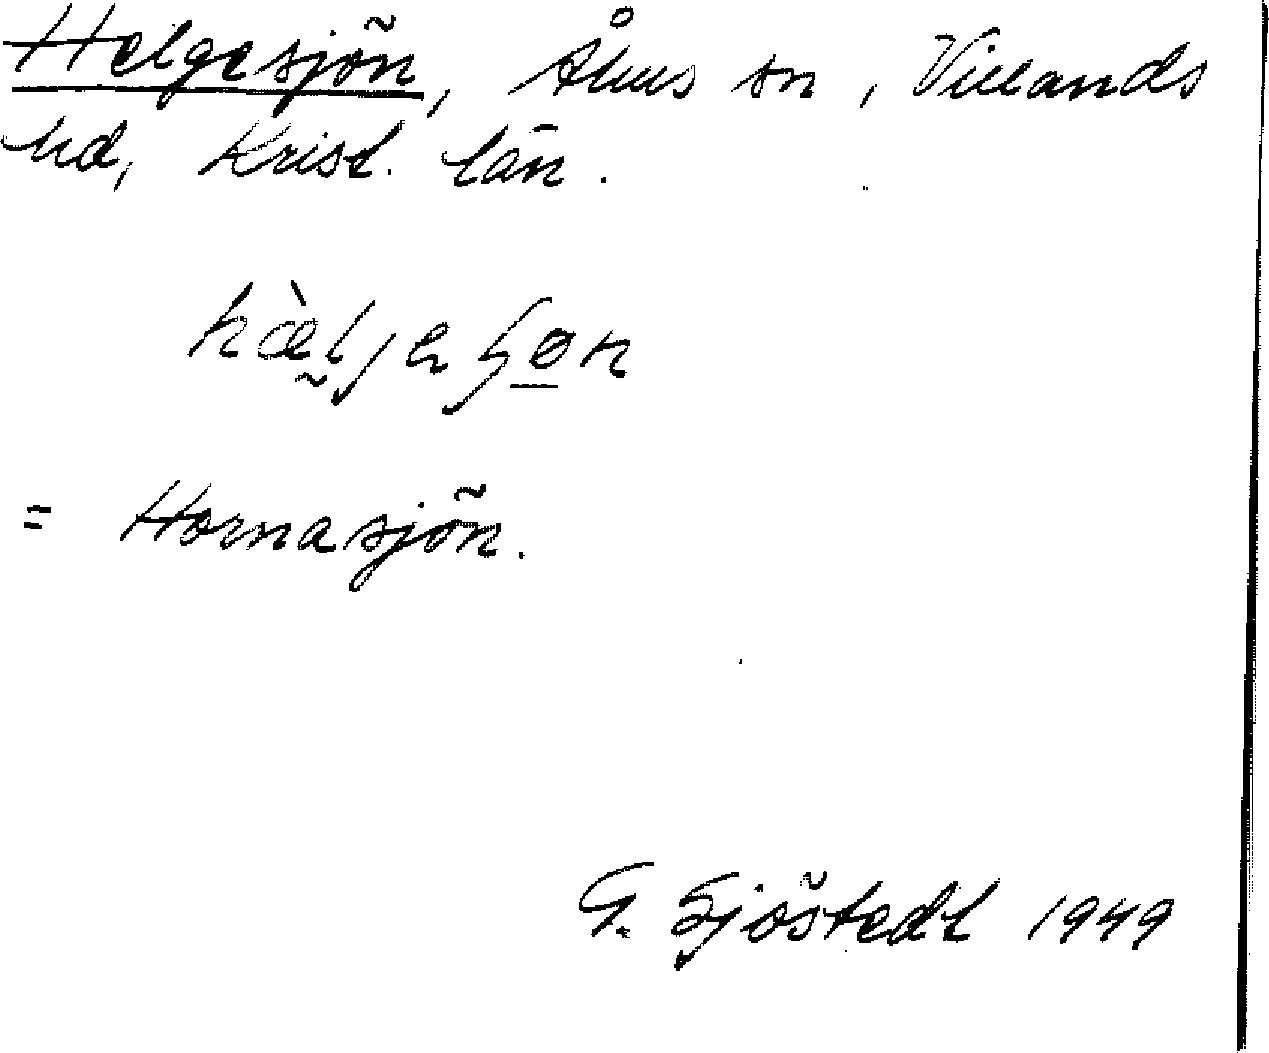 Helgesjön, Åhus sn, Villands
hd, Krist. län.
hæ̀ljeʃøn
= Hornasjön.
G. Sjöstedt 1949